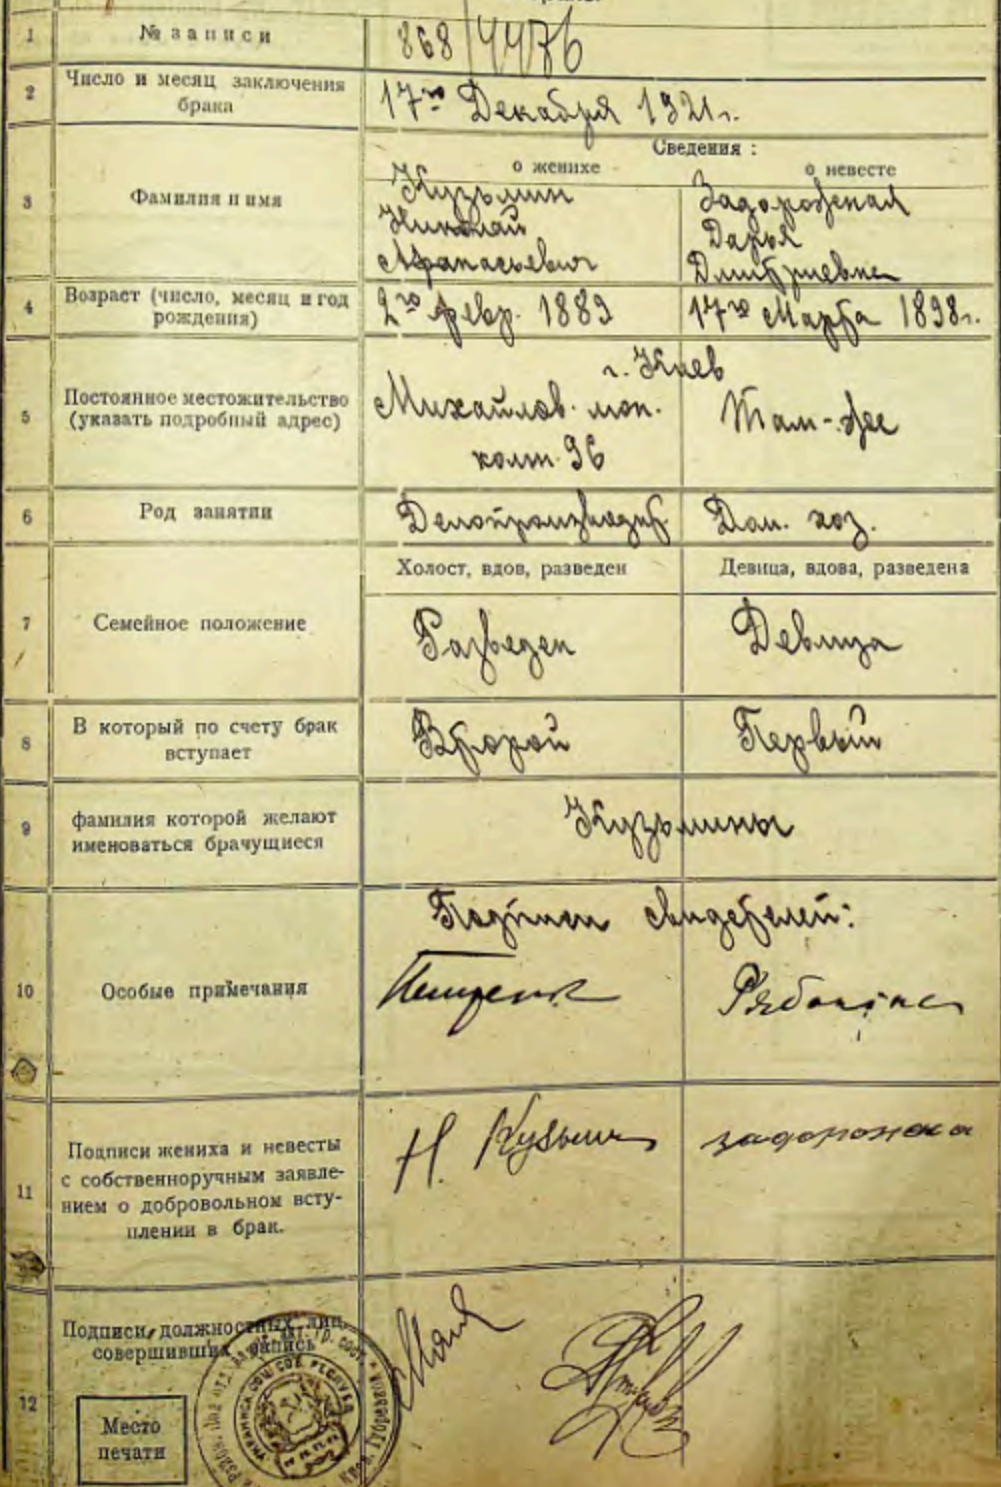 1 № записи 868/4476
2 Число и месяц заключения
брака
17го Декабря 1921г.
Сведения :
о женихе о невесте
3 Фамилия и имя
Кузьмин Задорожная
Николай Дарья
Афанасьевич Дмитриевна
4 Возраст (число, месяц и год
рождения)
2го февр. 1889 17го Марта 1898г.
г. Киев
5 Постоянное местожительство
(указать подробный адрес)
Михайлов. мон. Там-же
комн. 36
6 Род занятий Делопроизводит. Дом. хоз.
Холост, вдов, разведен Девица, вдова, разведена
7 Семейное положение Разведен Девица
8 В который по счету брак
вступает
Второй Первый
9 фамилия которой желают
именоваться брачущиеся
Кузьмины
Подписи свидетелей:
10 Особые примечания
11 Подписи жениха и невесты
с собственноручным заявле-
нием о добровольном всту-
плении в брак.
Н. Кузьмин
12 Подписи должностных лиц
совершивших запись
Место
печати